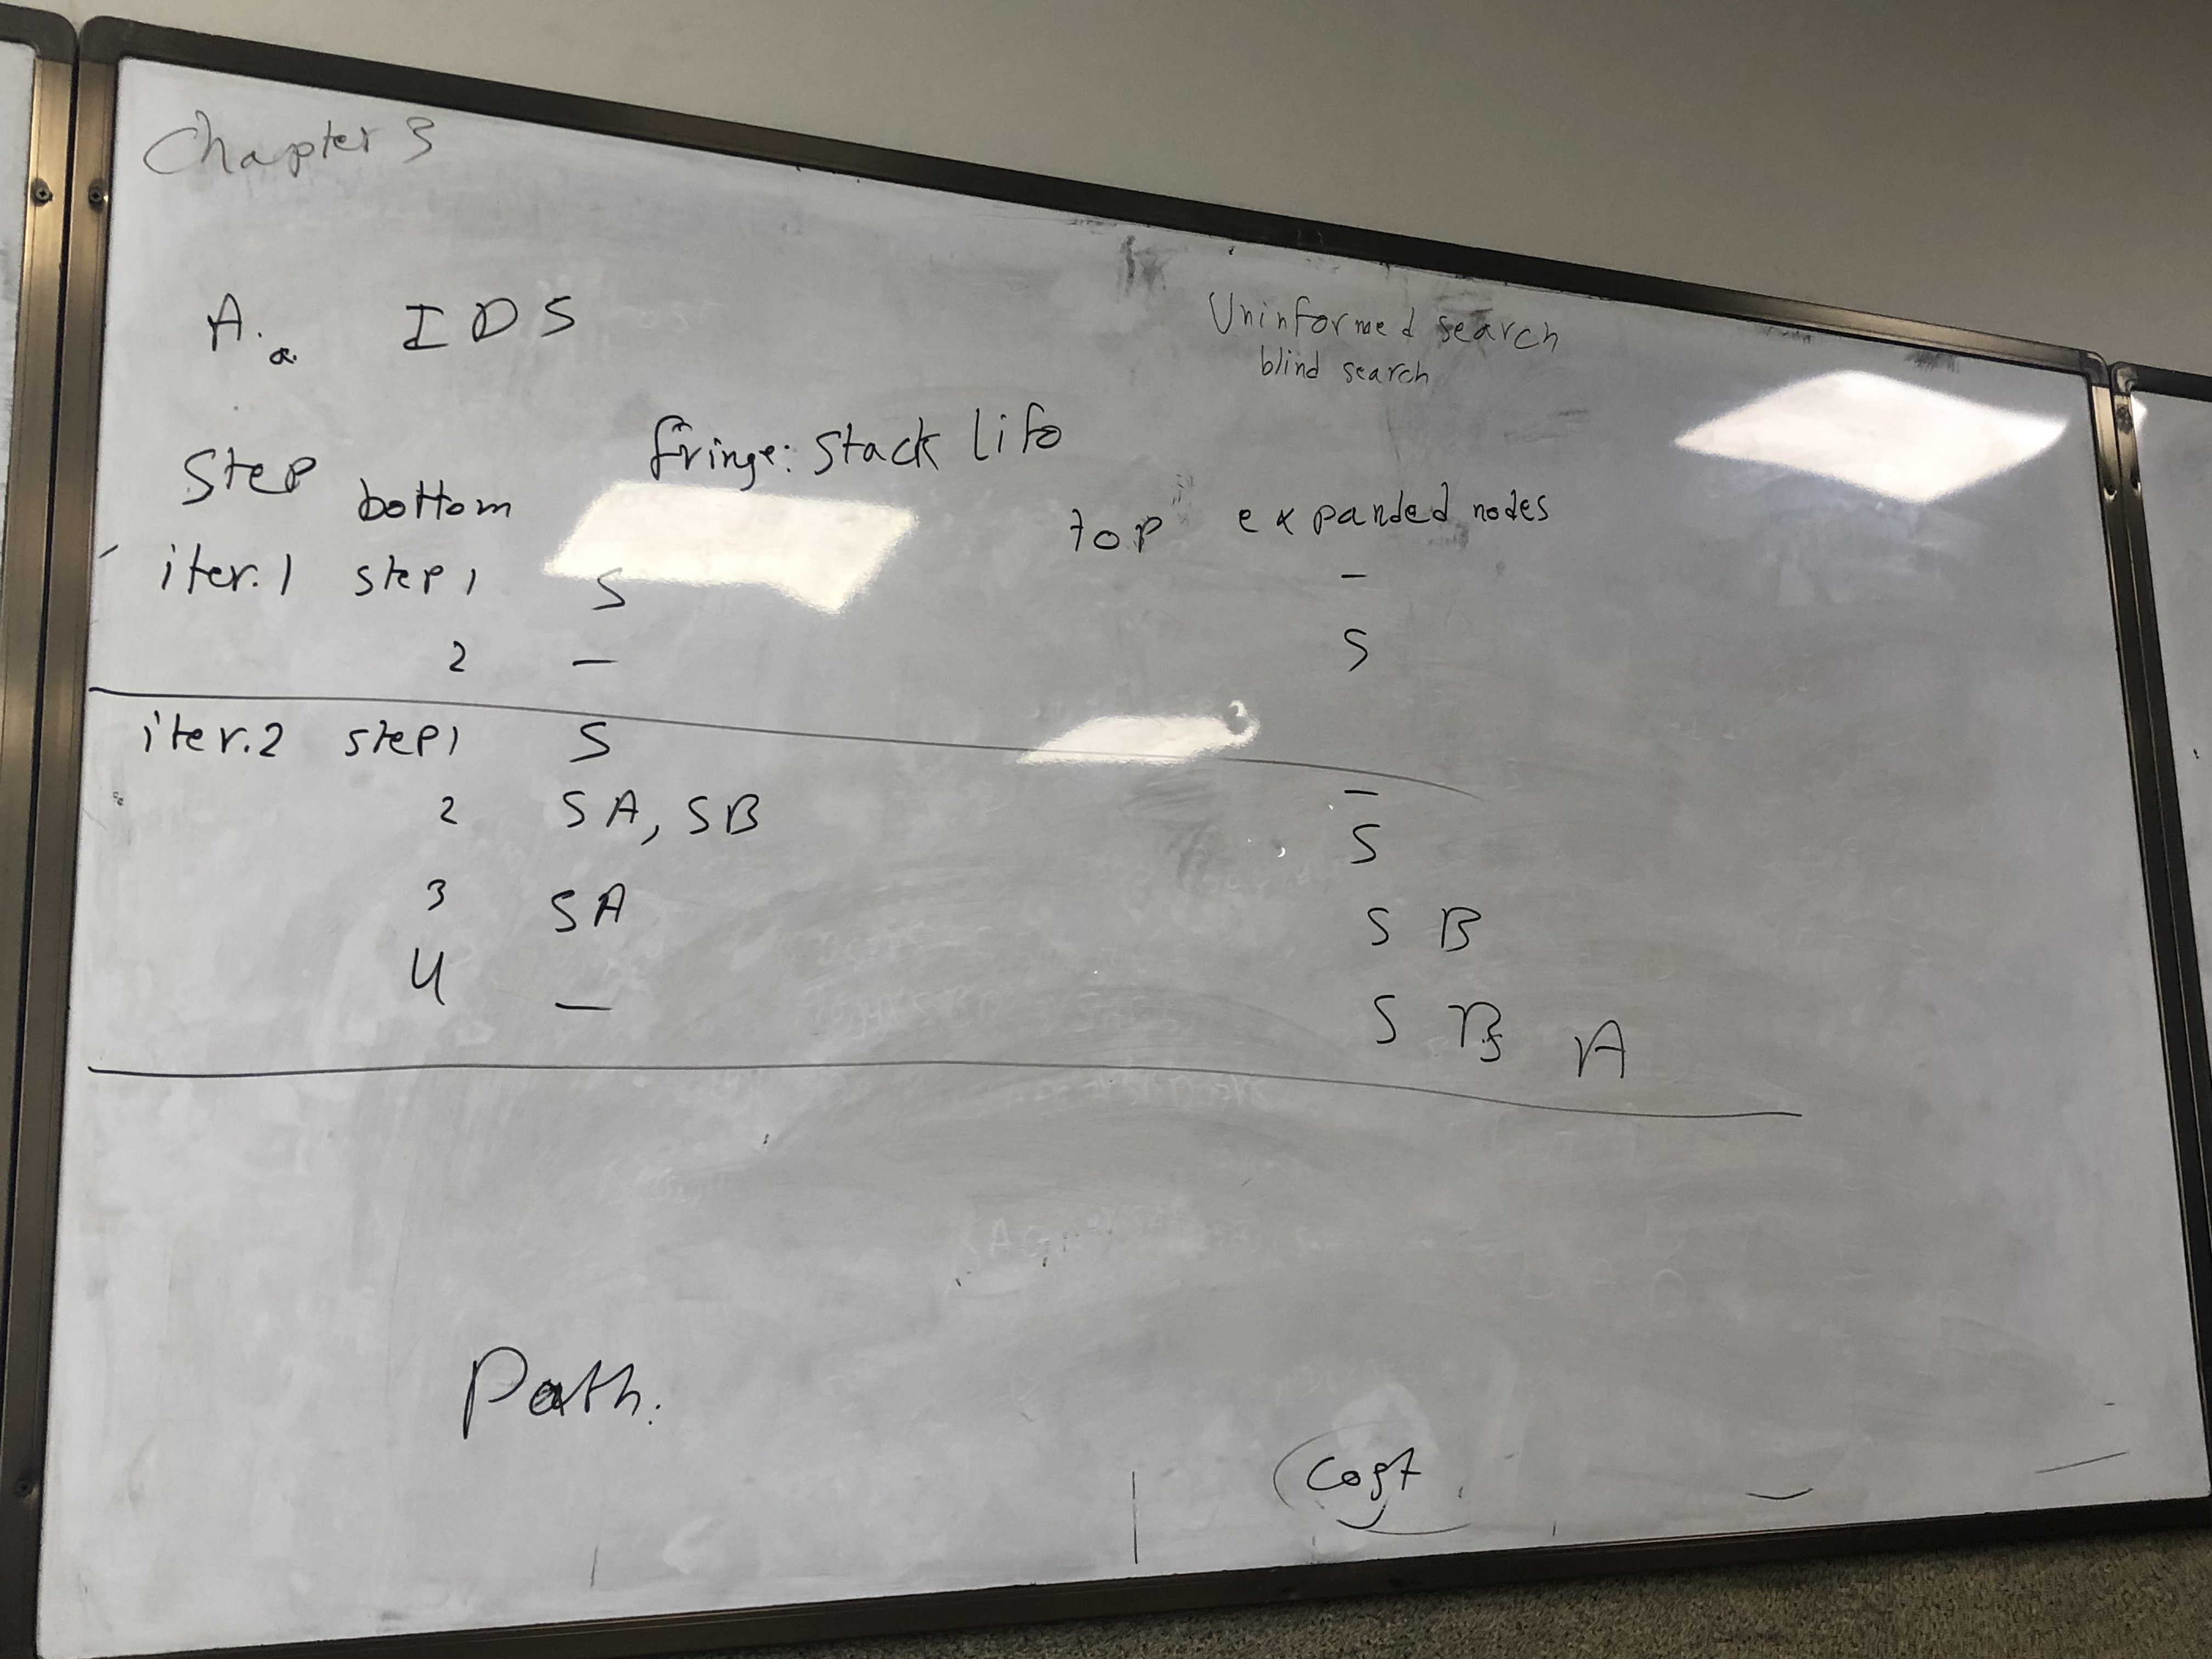 Chapter 3
A. a. IDS
Uninformed search
blind search
fringe: stack lifo
Step bottom top expanded nodes
iter.1 step 1 S –
2 – S
iter.2 step 1 S –
2 SA, SB S
3 SA S B
4 – S B A
Path:
Cost